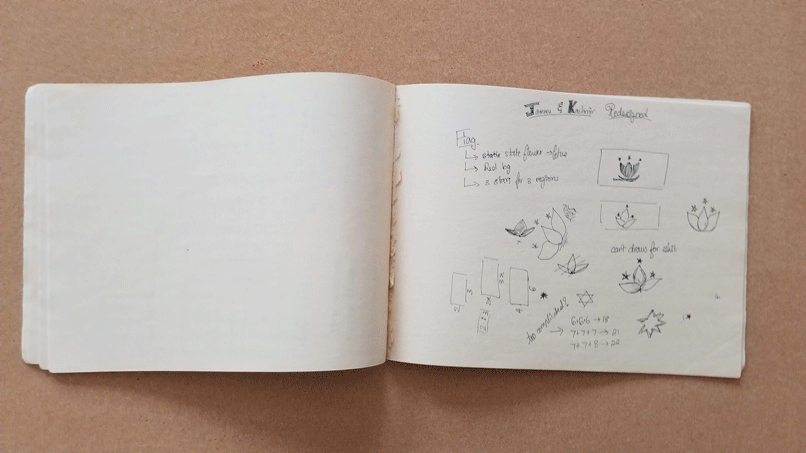 Jammu & Kashmir Redesigned
Flag
state state flower → lotus
Red bg
3 stars for 3 regions
can't draw for shit
2
3
2x
3x
4
6
2:3
too complicated?
6+6+6 → 18
7+7+7 → 21
7+7+8 → 22